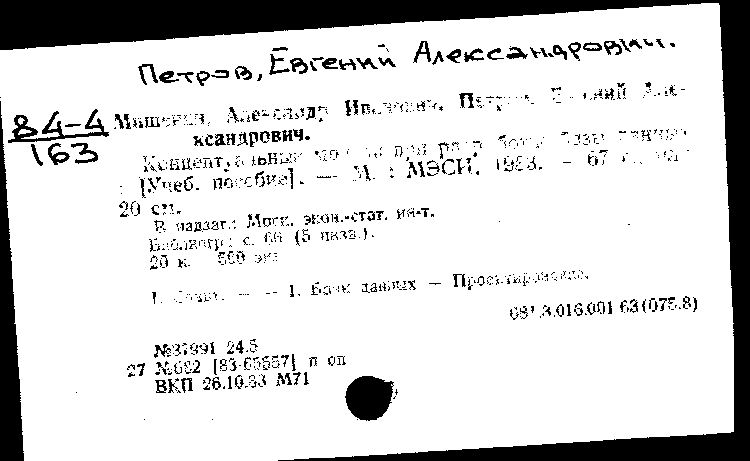 Петров, Евгений Александрович.
84-4
163
Александр Петров Евгений Але-
ксандрович.
Концептуальные при базы данных
: [Учеб. пособие]. — М. : МЭСИ, 1983. — 67 с.
20 см.
В надзаг.: Моск. экон.-стат. ин-т.
Библиогр.: с. 66 (5 назв.).
20 к. 500 экз.
I. — — 1. Банк данных — Проектирование.
681.3.016.001 63(075.8)
№37991 24.5
27 №682 [83-65557] п оп
ВКП 26.10.83 М71